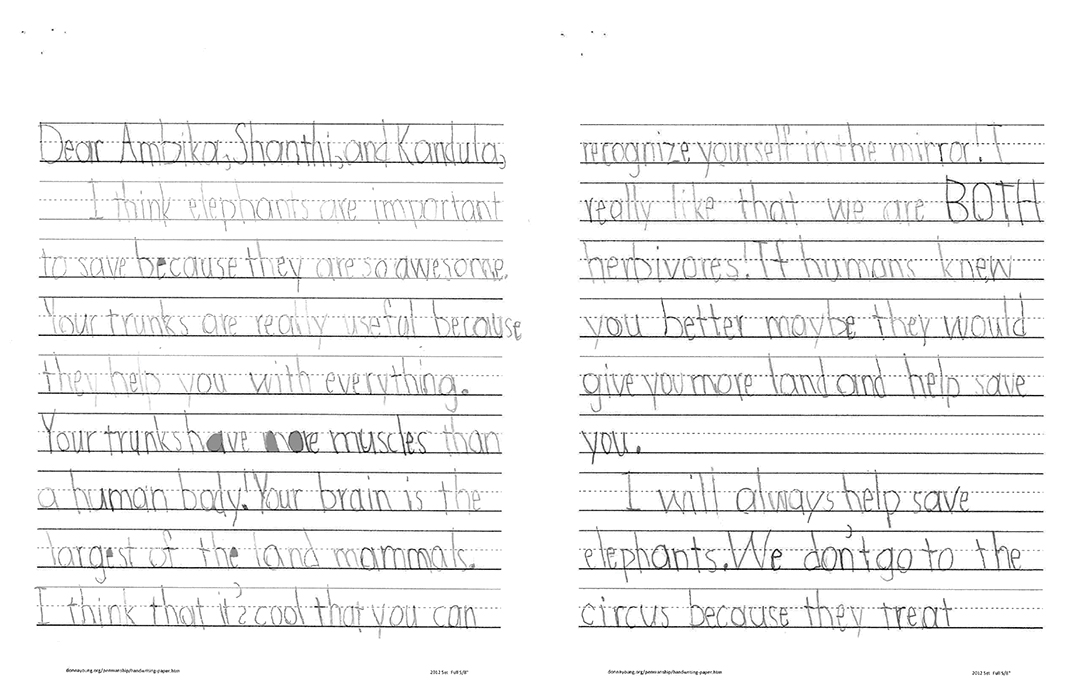 Dear Ambika, Shanthi, and Kandula,
I think elephants are important
to save because they are so awesome.
Your trunks are really useful because
they help you with everything.
Your trunks have more muscles than
a human body! Your brain is the
largest of the land mammals.
I think that it's cool that you can
donnayoung.org/penmanship/handwriting-paper.htm
2012 Set Full 5/8"
recognize yourself in the mirror! I
really like that we are BOTH
herbivores! If humans knew
you better maybe they would
give you more land and help save
you.
I will always help save
elephants. We don't go to the
circus because they treat
donnayoung.org/penmanship/handwriting-paper.htm
2012 Set Full 5/8"